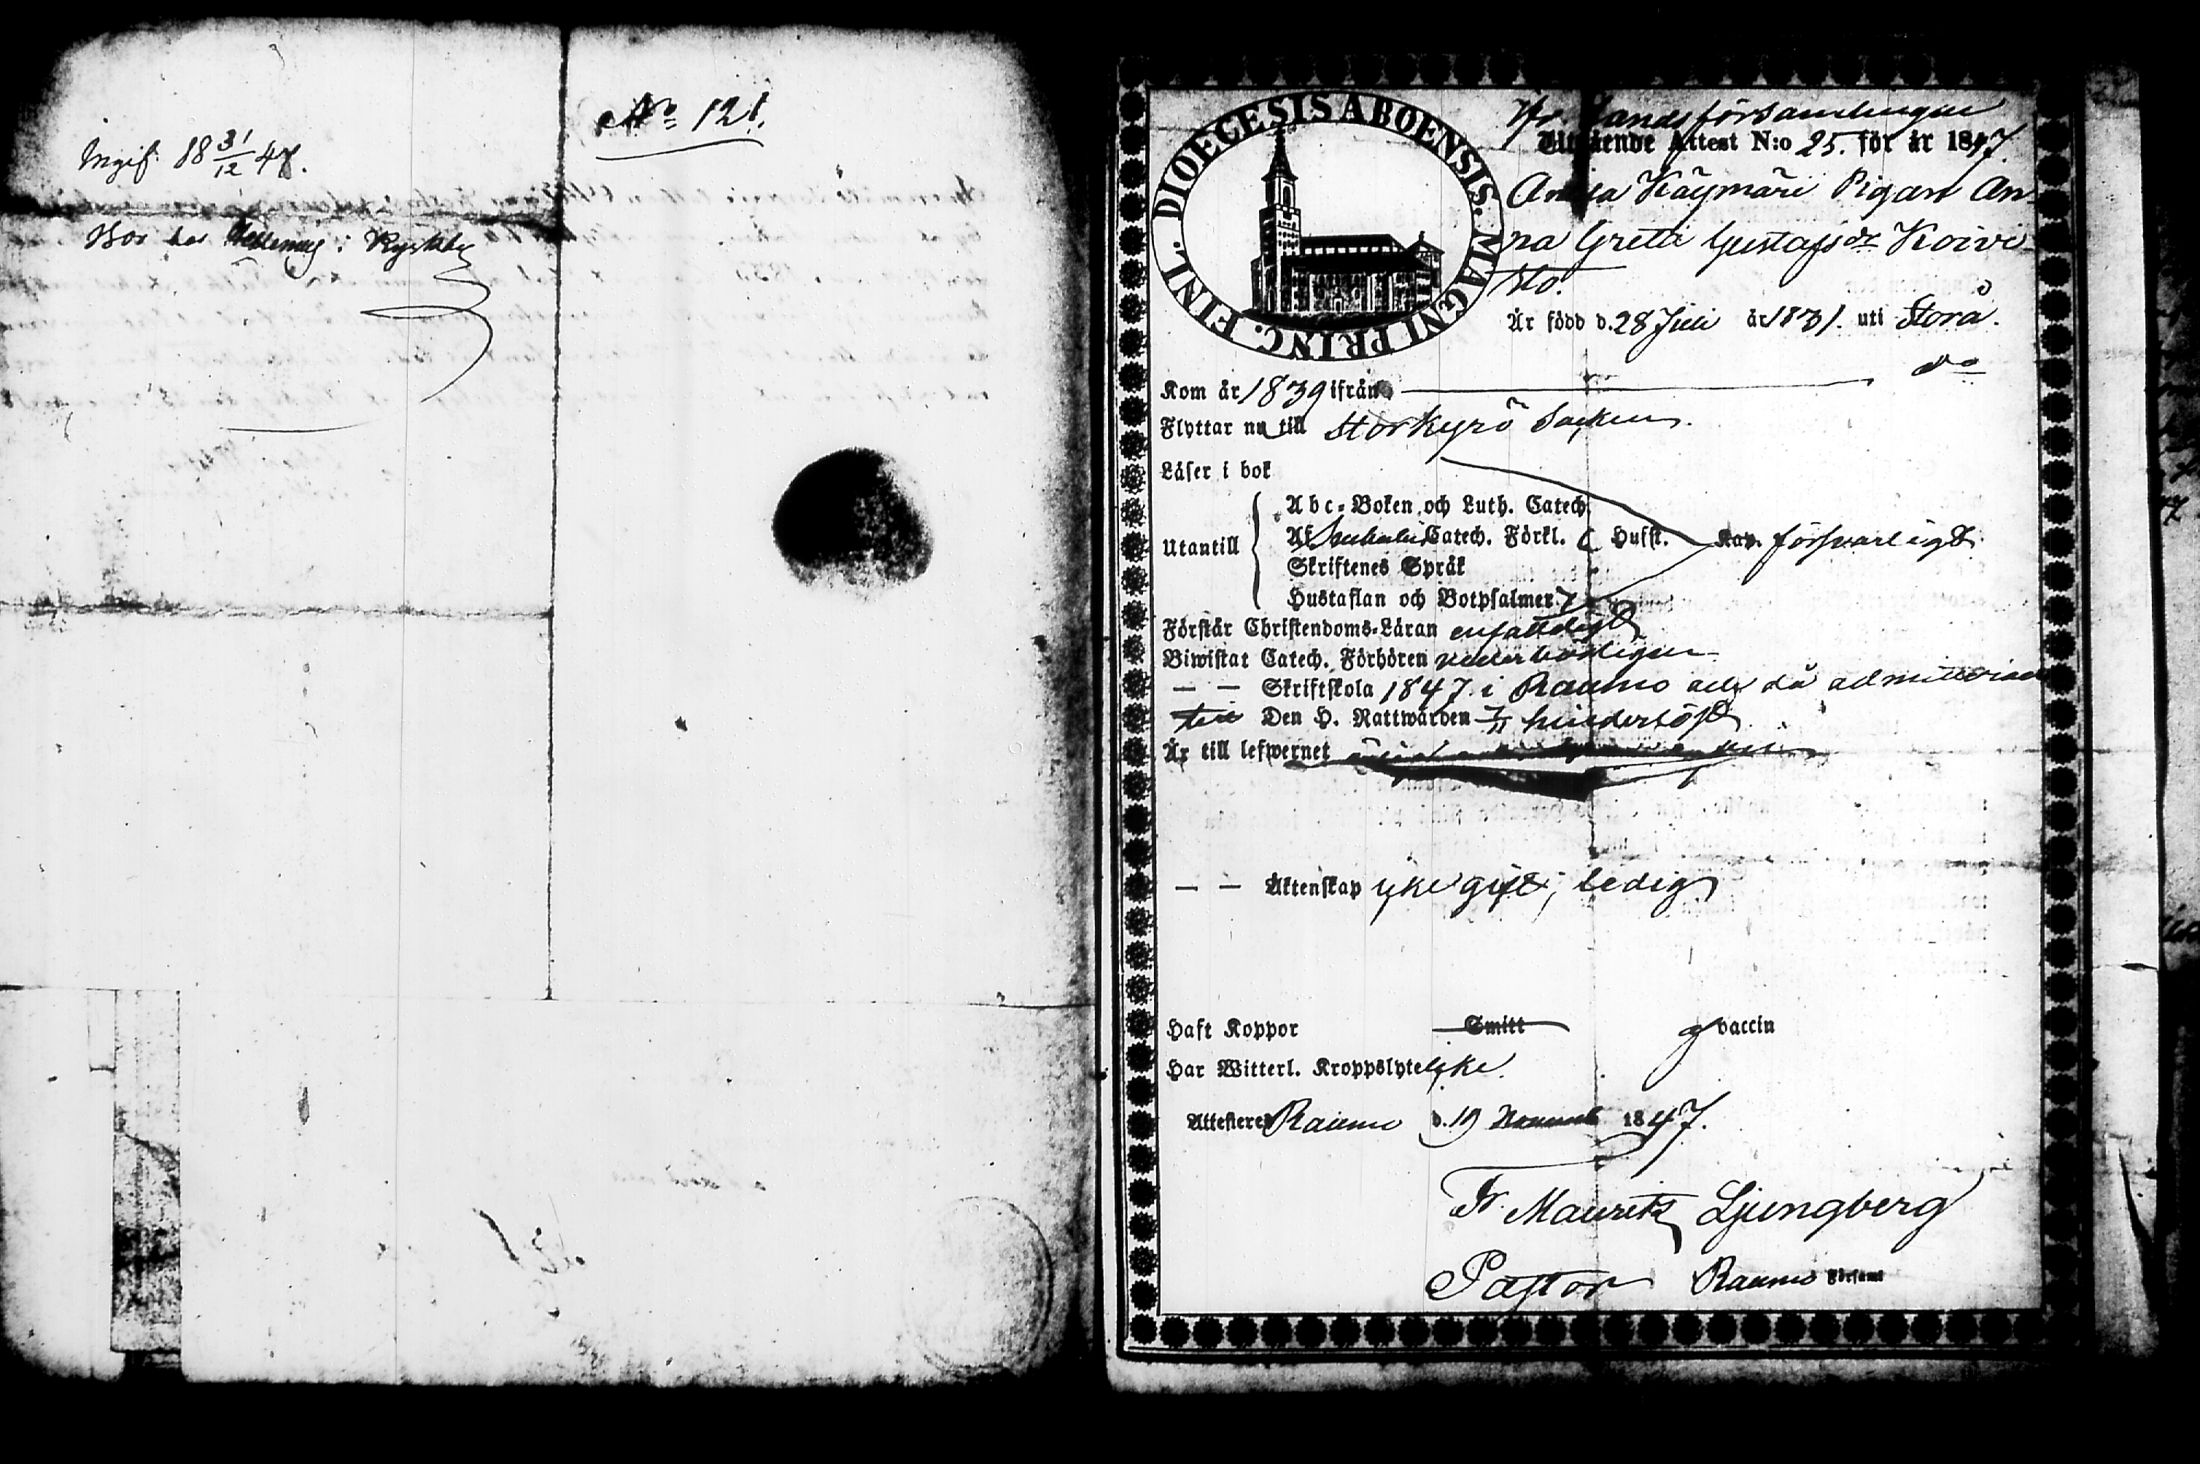 No 121.
Ingif. 18 31/12 47.
Bor hos i Kyrkby
DIOECESIS ABOENSIS. MAGNI PRINC. FINL.
fr. Landsförsamlingen
Utgående Attest N:o 25. för år 1847.
Käymäri Pigan An
na Greta Gustafsdr Koivi
sto.
Är född d. 28 Juli år 1831. uti Storå.
do
Kom år 1839 ifrån
Flyttar nu till Storkyrö Socken.
Läser i bok
Utantill
Abc-Boken och Luth. Catech.
Af Catech. Förkl. Hufst. Kap. försvarligt.
Skriftenes Språk
Hustaflan och Botpsalmer
Förstår Christendoms-Läran enfaldigt
Biwistat Catech. Förhören vederbörligen
— — Skriftskola 1847 i Raumo och då admitterad
till Den H. Nattwarden hinderlöst
Är till lefwernet
— — Äktenskap icke gift, ledig
Haft Koppor Smitt vaccin
Har Witterl. Kroppslyte icke.
Attesterer Raumo d. 19 1847.
Fr. Mauritz Ljungberg
Pastor Raumo Församl